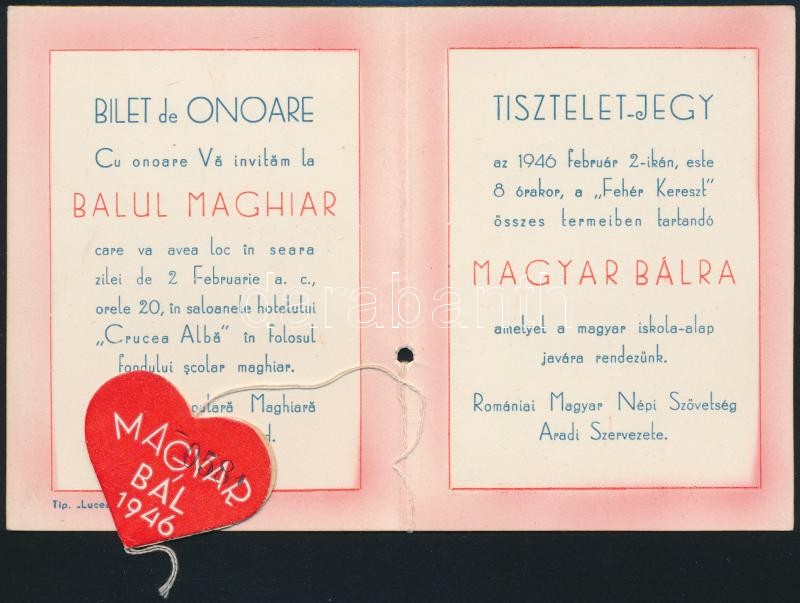 BILET de ONOARE
Cu onoare Vă invităm la
BALUL MAGHIAR
care va avea loc în seara
zilei de 2 Februarie a. c.,
orele 20, în saloanele hotelului
„Crucea Albă” în folosul
fondului școlar maghiar.
Maghiară
Tip.
MAGYAR
BÁL
1946
TISZTELET-JEGY
az 1946 február 2-ikán, este
8 órakor, a „Fehér Kereszt”
összes termeiben tartandó
MAGYAR BÁLRA
amelyet a magyar iskola-alap
javára rendezünk.
Romániai Magyar Népi Szövetség
Aradi Szervezete.
darabanth